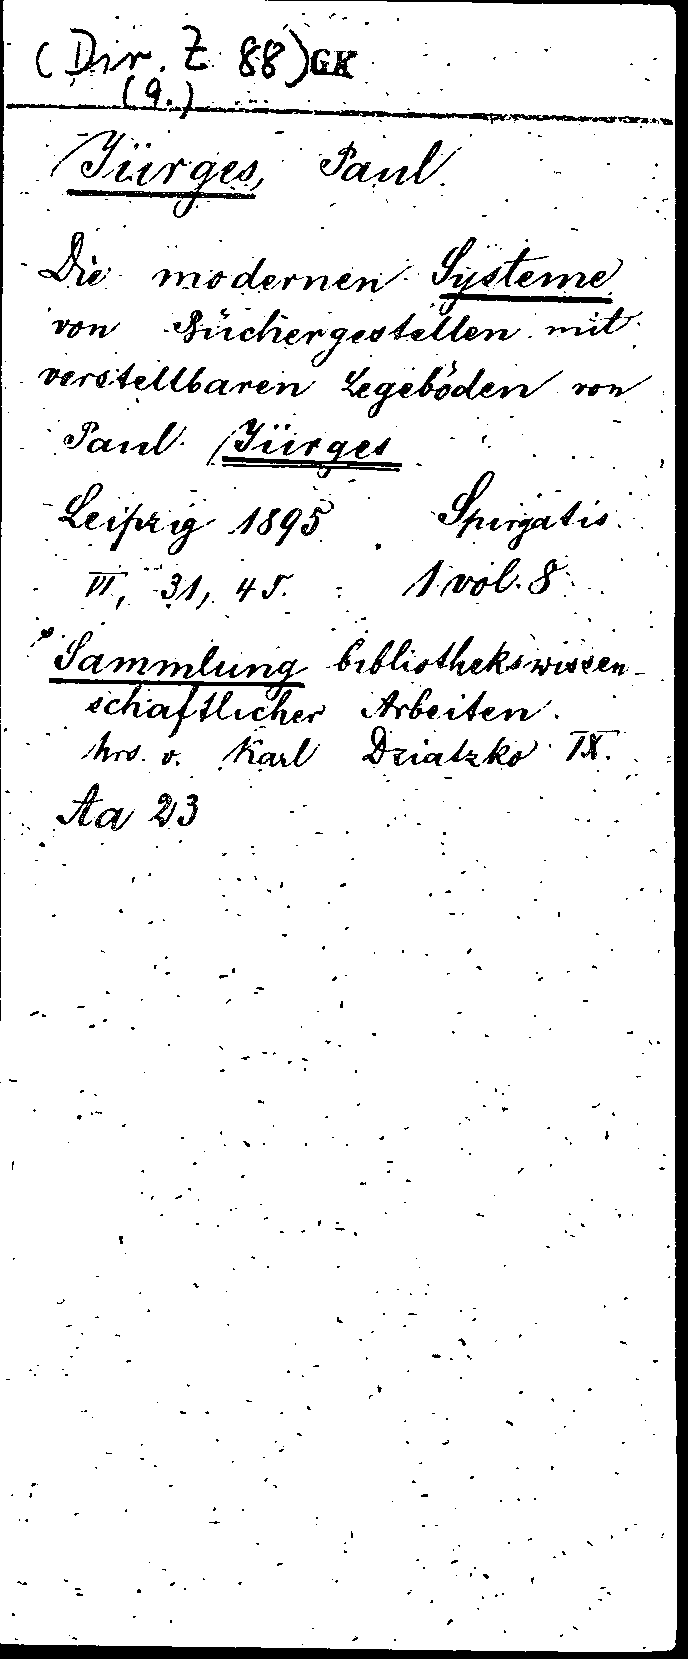 (Dir. Z 88)GK
(9.)
Jürges, Paul.
Die modernen Systeme
von Büchergestellen mit
verstellbaren Legeböden von
Paul Jürges
Leipzig 1895. Spirgatis.
VI, 31, 4 S. 1 vol. 8.
Sammlung bibliothekswissen-
schaftlicher Arbeiten.
hrs. v. Karl Dziatzko IX.
Aa 23